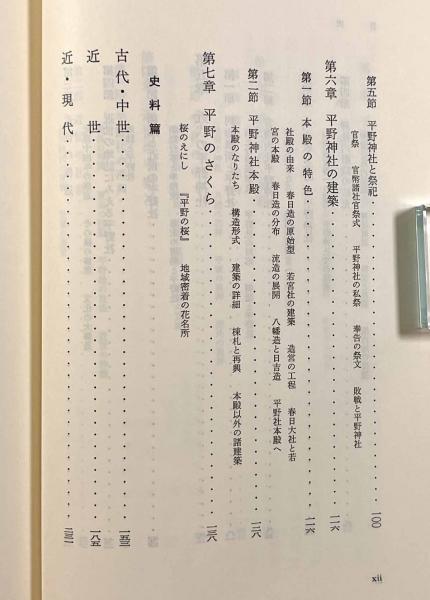 第五節　平野神社と祭祀 一〇〇
官祭　官幣諸社官祭式　平野神社の私祭　奉告の祭文　敗戦と平野神社
第六章　平野神社の建築 一一六
第一節　本殿の特色 一一六
社殿の由来　春日造の原始型　若宮社の建築　造営の工程　春日大社と若
宮の本殿　春日造の分布　流造の展開　八幡造と日吉造　平野社本殿へ
第二節　平野神社本殿 一二八
本殿のなりたち　構造形式　建築の詳細　棟札と再興　本殿以外の諸建築
第七章　平野のさくら 一三八
桜のえにし　『平野の桜』　地域密着の花名所
史料篇
古代・中世 一五三
近世 一八五
近・現代 二三一
xii